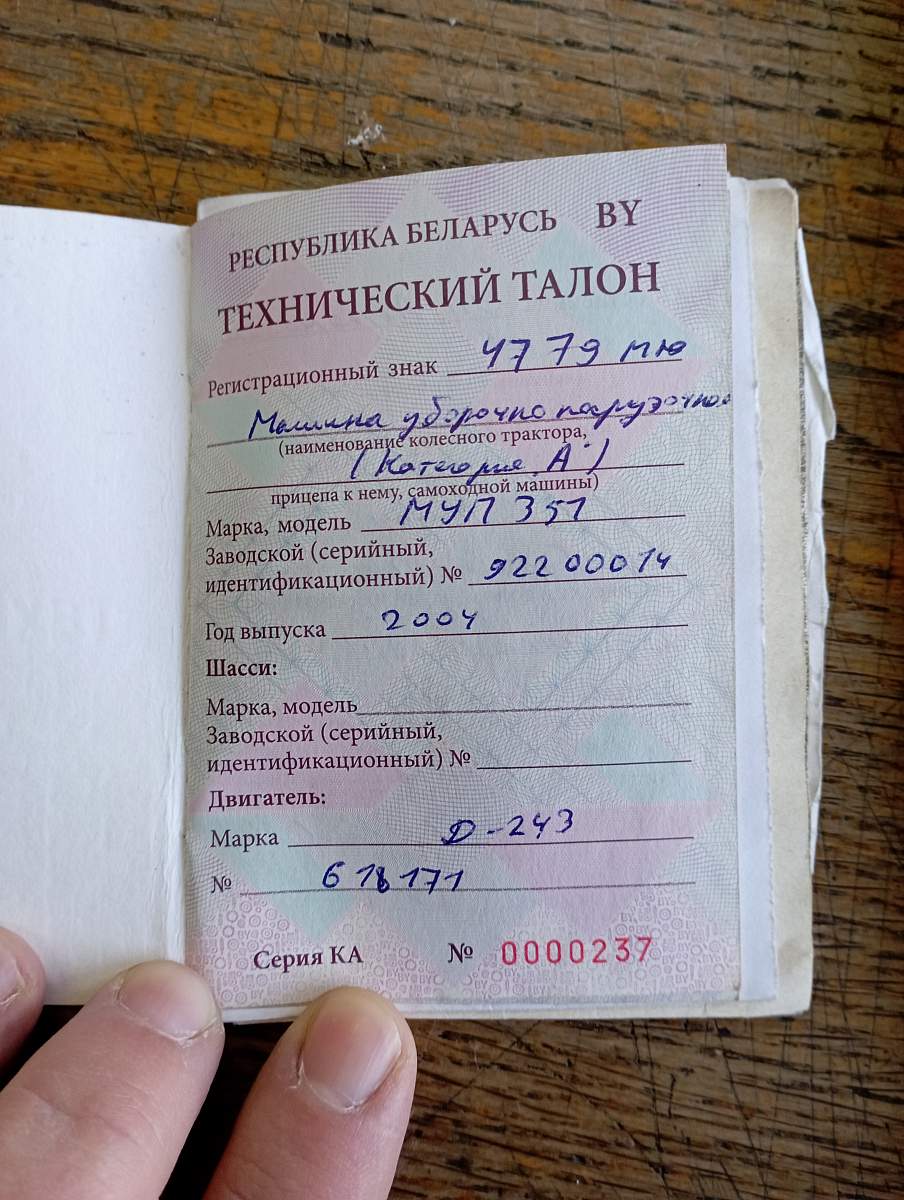 РЕСПУБЛИКА БЕЛАРУСЬ BY
ТЕХНИЧЕСКИЙ ТАЛОН
Регистрационный знак 4779 МЮ
Машина уборочно погрузочная
(наименование колесного трактора,
(Категория "А")
прицепа к нему, самоходной машины)
Марка, модель МУП 351
Заводской (серийный,
идентификационный) № 92200014
Год выпуска 2004
Шасси:
Марка, модель
Заводской (серийный,
идентификационный) №
Двигатель:
Марка Д-243
№
Серия КА № 0000237